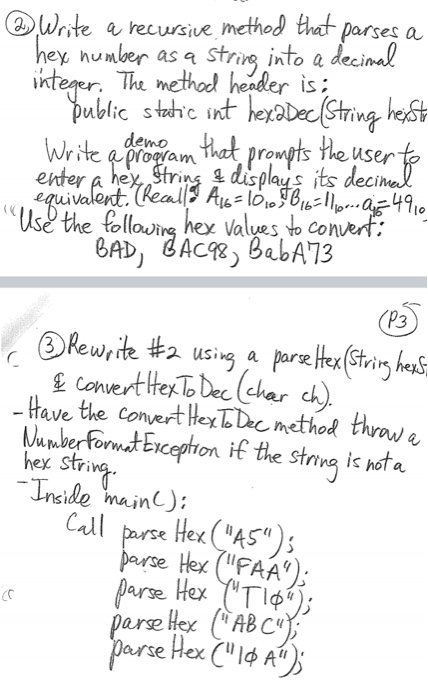 ② Write a recursive method that parses a
hex number as a string into a decimal
integer. The method header is:
public static int hex2Dec(String hexStr
Write a demo program that prompts the user to
enter a hex string & displays its decimal
equivalent. (Recall: A16=1010, B16=1110...a16=4910
"Use the following hex values to convert:
BAD, BAC98, BabA73
(P3)
③ Rewrite #2 using a parseHex(String hexS
& convertHexToDec(char ch).
- Have the convertHexToDec method throw a
NumberFormatException if the string is not a
hex string.
- Inside main():
Call parseHex("A5");
parseHex("FAA");
parseHex("T1φ");
parseHex("ABC");
parseHex("1φA");